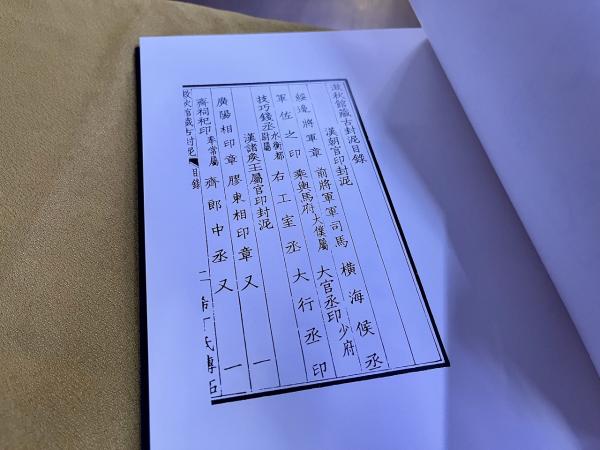 澂秋館藏古封泥目錄
漢朝官印封泥
綏邊將軍章 前將軍軍司馬 橫海侯丞
軍佐之印 乘輿馬府大僕屬 大官丞印少府
右工室丞 大行丞印
技巧錢丞水衡都尉屬
漢諸矦王屬官印封泥 一
廣陽相印章 膠東相印章 又 一
齊祠祀印奉常屬 齊郎中丞 又
秋館藏古封泥 目錄 二